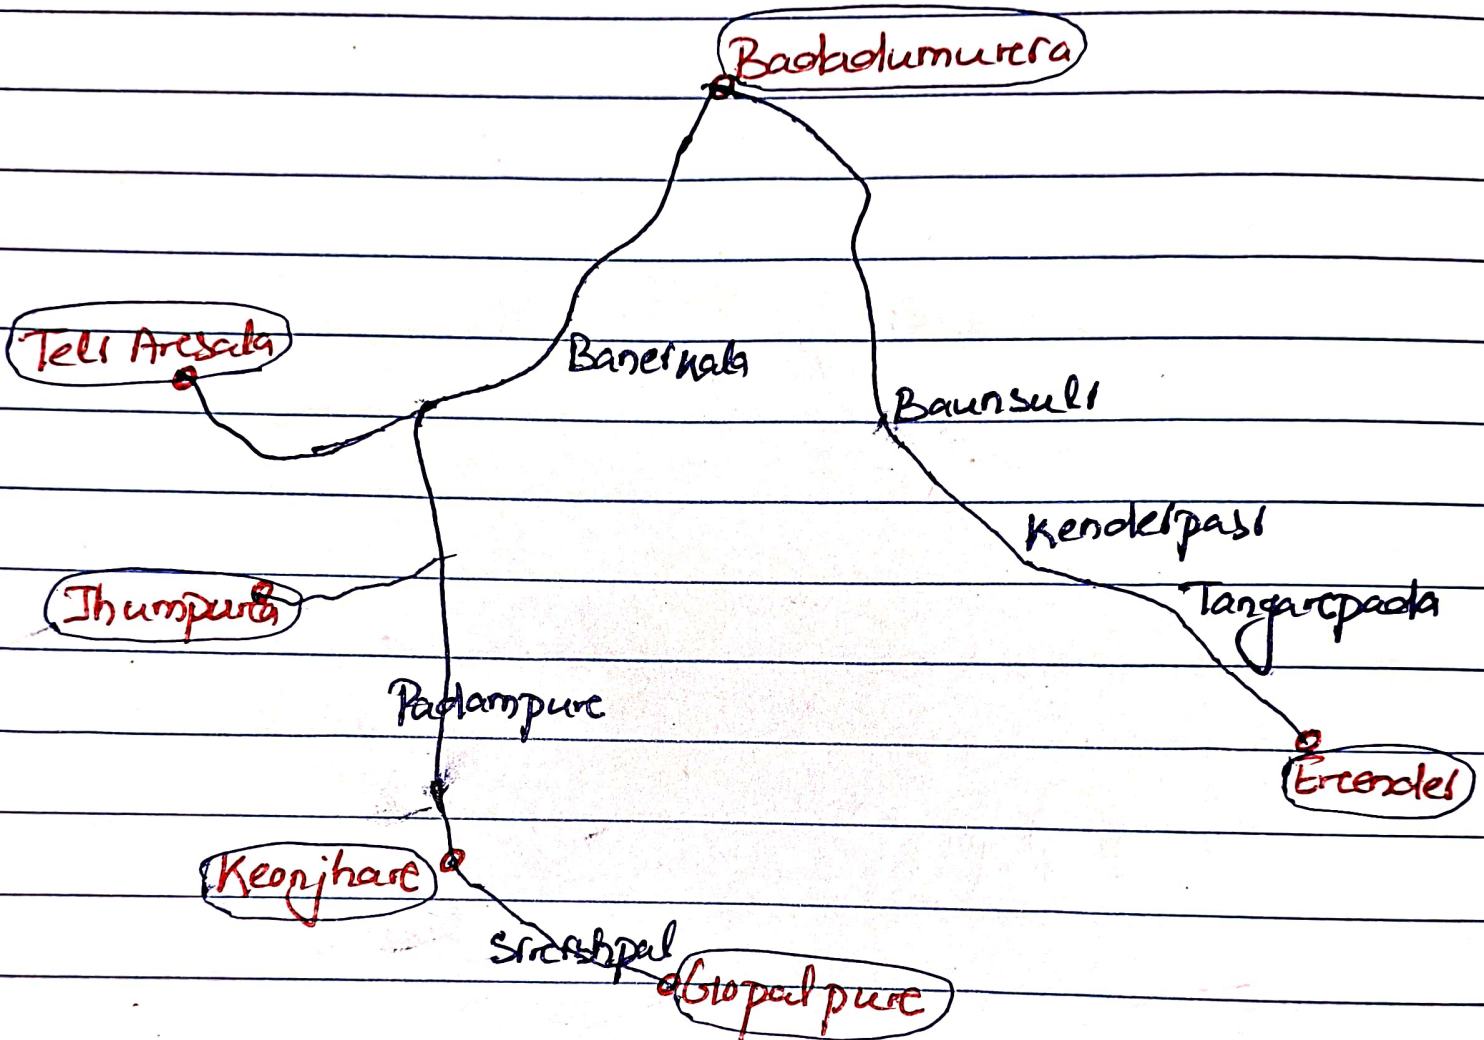 Badadumurera
Teli Arcsala
Banerkata
Baunsuli
Kenderpasi
Jhumpura
Tangarcpada
Padampurc
Ercendei
Keonjharc
Gopalpurc